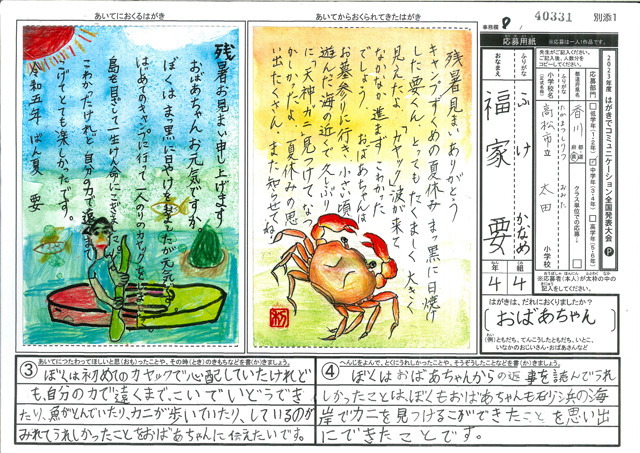 あいてにおくるはがき
残暑お見まい申し上げます。
おばあちゃんお元気ですか。
ぼくは、まっ黒に日やけを
はじめてのキャンプに行って、一人のりのカヤックで
島を目ざして一生けん命に
こわかったけれど自分の力で遠くまで
とても楽しかったです。
令和五年 ばん夏 要
あいてからおくられてきたはがき
残暑見まいありがとう
キャンプずくめの夏休み まっ黒に日焼け
した要くん、とってもたくましく、大きく
見えたよ。「カヤック」波が来て
なかなか進まずこわかった
でしょう。おばあちゃんは
お墓参りに行き、小さい頃
遊んだ海の近くで久しぶり
に「天神ガニ」見つけて、なつ
かしかったよ。夏休みの思
い出たくさん、また知らせてね。
事務欄
9
40331
別添1
応募用紙
※応募は一人1作品です。
先生がご記入ください。
ご記入後、人数分を
コピーしてください。
2023年度 はがきでコミュニケーション全国発表大会 P
応募部門
低学年(1・2年)
中学年(3・4年)
高学年(5・6年)
クラス単位での応募
都道府県名
香川
都 道 府 県
小学校名
(正式名称)
ふりがな
たかまつしりつ
おおた
高松市立 太田 小学校
おなまえ
ふりがな
ふけ かなめ
福家 要
4年 4組
※応募者(本人)が太枠の中の
記入をしてください。
はがきは、だれにおくりましたか?
(おばあちゃん)
(例)ともだち、てんこうしたともだち、いとこ、
いなかのおじいさん・おばあさんなど
③ あいてにつたわってほしいと思(おも)ったことや、その時(とき)のきもちなどを書(か)きましょう。
ぼくは初めてのカヤックで心配していたけれど
も、自分の力で遠くまでこいでいどうでき
たり、魚がとんでいたり、カニが歩いていたり、しているのが
みれてうれしかったことをおばあちゃんに伝えたいです。
④ へんじをよんで、とくにうれしかったことや、そうぞうしたことなどを書(か)きましょう。
ぼくはおばあちゃんからの返事を読んでうれ
しかったことは、ぼくもおばあちゃんも砂浜の海
岸でカニを見つけることができたことを思い出
にできたことです。